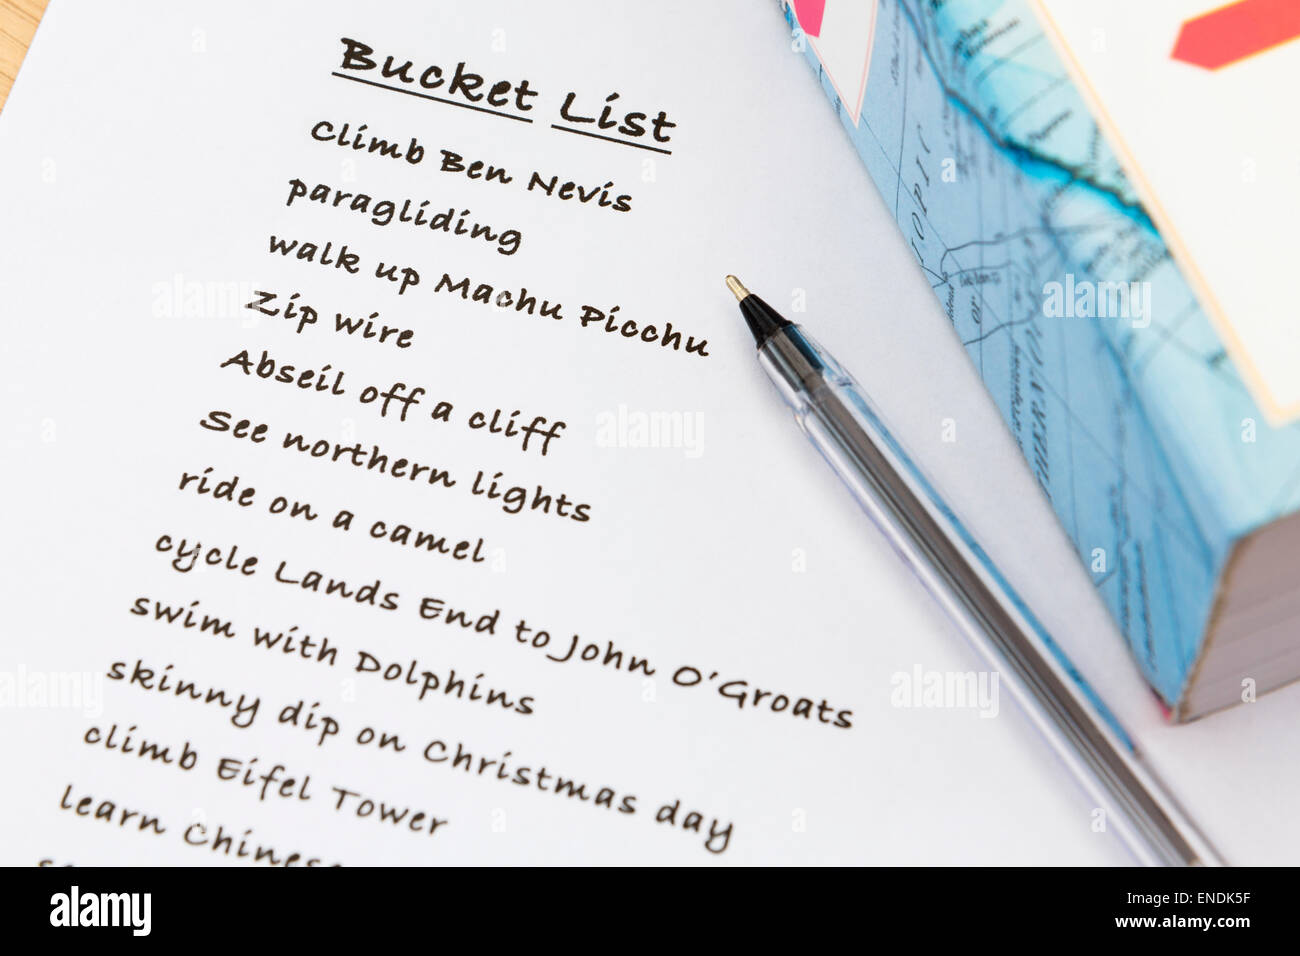 Bucket List
Climb Ben Nevis
paragliding
walk up Machu Picchu
Zip wire
Abseil off a cliff
See northern lights
ride on a camel
cycle Lands End to John O'Groats
swim with Dolphins
skinny dip on Christmas day
climb Eifel Tower
learn Chinese
OPIC
alamy
alamy stock photo
ENDK5F
www.alamy.com